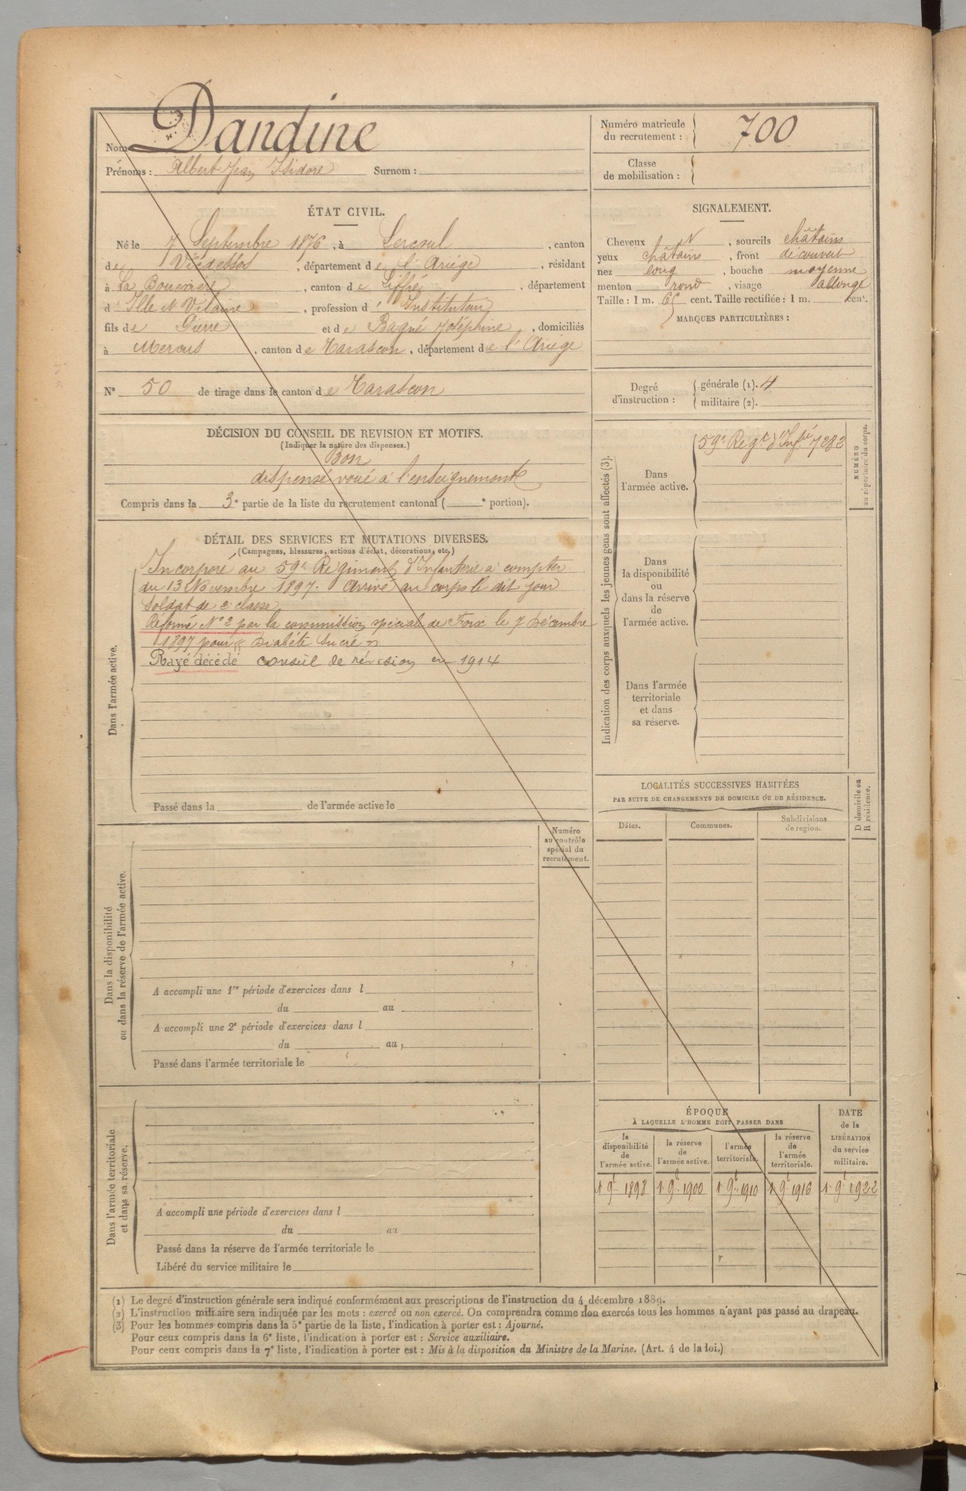 Nom Dandine
Prénoms : Albert Jean Isidore Surnom :
Numéro matricule du recrutement : 700
Classe de mobilisation :
ÉTAT CIVIL.
Né le 7 Septembre 1876, à Lercoul, canton
de Vicdessos, département de l'Ariège, résidant
à La Bouexière, canton de Liffré, département
d'Ille et Vilaine, profession d'Instituteur
fils de Pierre et de Bagné Joséphine, domiciliés
à Mercus, canton de Tarascon, département de l'Ariège
N° 50 de tirage dans le canton de Tarascon
SIGNALEMENT.
Cheveux N, sourcils châtains
yeux châtains, front découvert
nez long, bouche moyenne
menton rond, visage allongé
Taille : 1 m. 65 cent. Taille rectifiée : 1 m. cent.
MARQUES PARTICULIÈRES :
Degré d'instruction : générale (1). 4
militaire (2).
DÉCISION DU CONSEIL DE REVISION ET MOTIFS.
(Indiquer la nature des dispenses.)
Bon
dispensé voué à l'enseignement
Compris dans la 3e partie de la liste du recrutement cantonal ( e portion).
DÉTAIL DES SERVICES ET MUTATIONS DIVERSES.
(Campagnes, blessures, actions d'éclat, décorations, etc.)
Dans l'armée active.
Incorporé au 59e Régiment d'Infanterie à compter
du 13 Novembre 1897. Arrivé au corps le dit jour
soldat de 2e classe
Réformé N° 2 par la commission spéciale de Foix le 9 Décembre
1897 pour « Diabète sucré »
Rayé décédé conseil de révision en 1914
Passé dans la de l'armée active le
Indication des corps auxquels les jeunes gens sont affectés (3).
NUMÉRO au répertoire du corps.
Dans l'armée active.
59e Regt d'Infie 7283
Dans la disponibilité ou dans la réserve de l'armée active.
Dans l'armée territoriale et dans sa réserve.
LOCALITÉS SUCCESSIVES HABITÉES
PAR SUITE DE CHANGEMENTS DE DOMICILE OU DE RÉSIDENCE.
Dates. Communes. Subdivisions de région. D domicile ou R résidence.
Numéro au contrôle spécial du recrutement.
Dans la disponibilité ou dans la réserve de l'armée active.
A accompli une 1re période d'exercices dans l
du au
A accompli une 2e période d'exercices dans l
du au
Passé dans l'armée territoriale le
Dans l'armée territoriale et dans sa réserve.
A accompli une période d'exercices dans l
du au
Passé dans la réserve de l'armée territoriale le
Libéré du service militaire le
ÉPOQUE
À LAQUELLE L'HOMME DOIT PASSER DANS
la disponibilité de l'armée active. la réserve de l'armée active. l'armée territoriale. la réserve de l'armée territoriale. DATE de la LIBÉRATION du service militaire.
1 9e 1898 1 9e 1900 1 9e 1910 1 9e 1916 1 9e 1922
(1) Le degré d'instruction générale sera indiqué conformément aux prescriptions de l'instruction du 4 décembre 1889.
(2) L'instruction militaire sera indiquée par les mots : exercé ou non exercé. On comprendra comme non exercés tous les hommes n'ayant pas passé au drapeau.
(3) Pour les hommes compris dans la 5e partie de la liste, l'indication à porter est : Ajourné.
Pour ceux compris dans la 6e liste, l'indication à porter est : Service auxiliaire.
Pour ceux compris dans la 7e liste, l'indication à porter est : Mis à la disposition du Ministre de la Marine. (Art. 4 de la loi.)